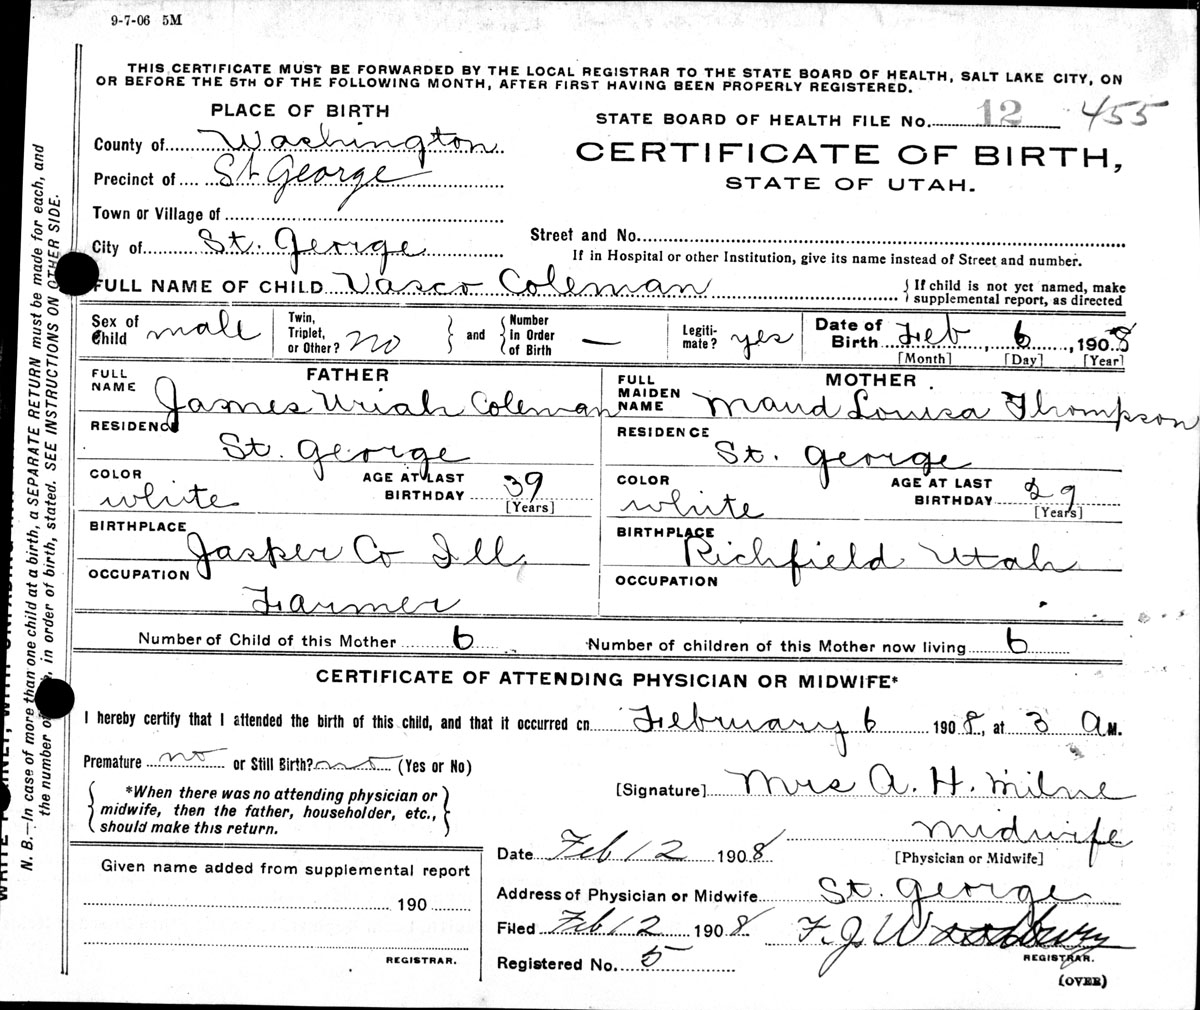 9-7-06 5M
THIS CERTIFICATE MUST BE FORWARDED BY THE LOCAL REGISTRAR TO THE STATE BOARD OF HEALTH, SALT LAKE CITY, ON
OR BEFORE THE 5TH OF THE FOLLOWING MONTH, AFTER FIRST HAVING BEEN PROPERLY REGISTERED.
PLACE OF BIRTH
STATE BOARD OF HEALTH FILE No. 12 455
County of Washington
CERTIFICATE OF BIRTH,
STATE OF UTAH.
Precinct of St George
Town or Village of
City of St. George
Street and No.
If in Hospital or other Institution, give its name instead of Street and number.
FULL NAME OF CHILD Vasco Coleman
{ If child is not yet named, make
supplemental report, as directed
Sex of Child male
Twin, Triplet, or Other? no
and
Number In Order of Birth —
Legiti-mate? yes
Date of Birth Feb, 6, 1908
[Month] [Day] [Year]
FATHER
FULL NAME James Uriah Coleman
RESIDENCE St. George
COLOR white
AGE AT LAST BIRTHDAY 39
[Years]
BIRTHPLACE Jasper Co Ill
OCCUPATION Farmer
MOTHER
FULL MAIDEN NAME Maud Louisa Thompson
RESIDENCE St. George
COLOR white
AGE AT LAST BIRTHDAY 29
[Years]
BIRTHPLACE Richfield Utah
OCCUPATION
Number of Child of this Mother 6 Number of children of this Mother now living 6
CERTIFICATE OF ATTENDING PHYSICIAN OR MIDWIFE*
I hereby certify that I attended the birth of this child, and that it occurred on February 6 1908, at 3 A M.
Premature no or Still Birth? no (Yes or No)
*When there was no attending physician or
midwife, then the father, householder, etc.,
should make this return.
[Signature] Mrs A. H. Milne
midwife
[Physician or Midwife]
Date Feb 12 1908
Address of Physician or Midwife St. George
Filed Feb 12 1908 F. J. Woodbury
REGISTRAR.
Registered No. 5
(OVER)
Given name added from supplemental report
190
REGISTRAR.
N. B.—In case of more than one child at a birth, a SEPARATE RETURN must be made for each, and
the number of, in order of birth, stated. SEE INSTRUCTIONS ON OTHER SIDE.